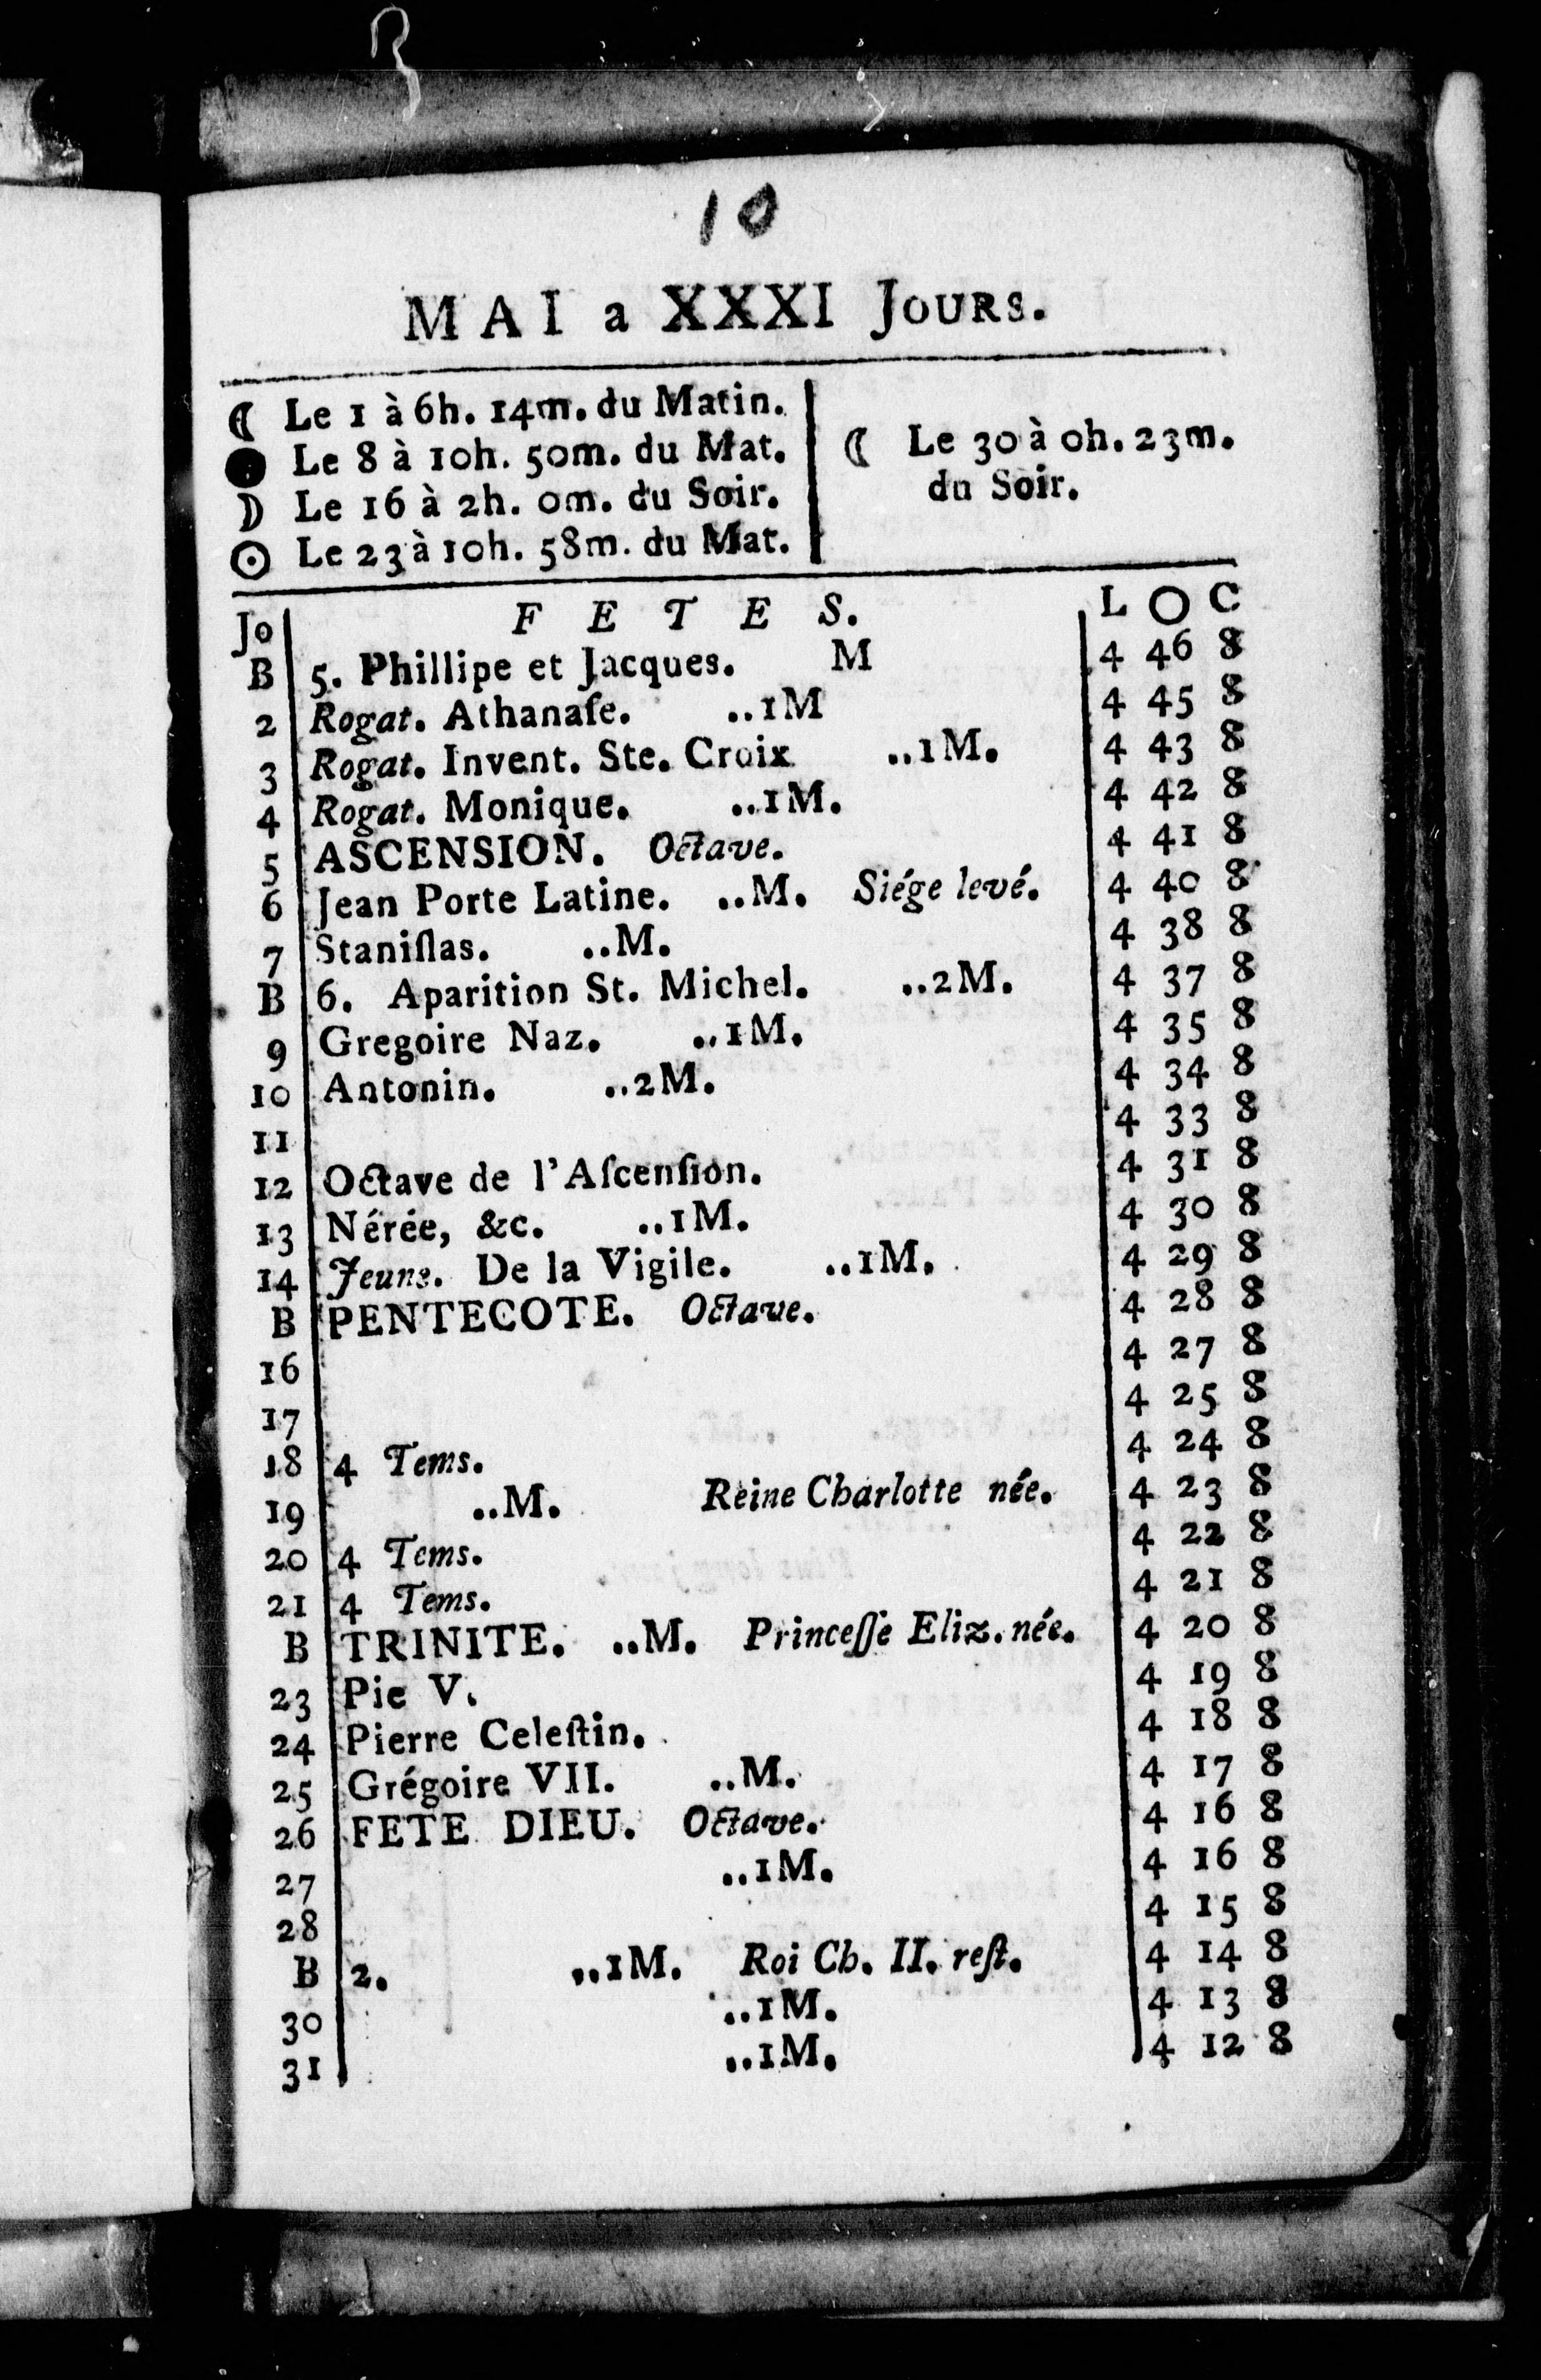 10
MAI a XXXI JOURS.
☾ Le 1 à 6h. 14m. du Matin.
● Le 8 à 10h. 50m. du Mat.
☽ Le 16 à 2h. 0m. du Soir.
☉ Le 23 à 10h. 58m. du Mat.
☾ Le 30 à 0h. 23m.
du Soir.
Jo F E T E S. L O C
B 5. Phillipe et Jacques. M 4 46 8
2 Rogat. Athanaſe. ..1M 4 45 8
3 Rogat. Invent. Ste. Croix ..1M. 4 43 8
4 Rogat. Monique. ..1M. 4 42 8
5 ASCENSION. Octave. 4 41 8
6 Jean Porte Latine. ..M. Siége levé. 4 40 8
7 Staniſlas. ..M. 4 38 8
B 6. Aparition St. Michel. ..2M. 4 37 8
9 Gregoire Naz. ..1M. 4 35 8
10 Antonin. ..2M. 4 34 8
11 4 33 8
12 Octave de l'Aſcenſion. 4 31 8
13 Nérée, &c. ..1M. 4 30 8
14 Jeune. De la Vigile. ..1M. 4 29 8
B PENTECOTE. Octave. 4 28 8
16 4 27 8
17 4 25 8
18 4 Tems. 4 24 8
19 ..M. Reine Charlotte née. 4 23 8
20 4 Tems. 4 22 8
21 4 Tems. 4 21 8
B TRINITE. ..M. Princeſſe Eliz. née. 4 20 8
23 Pie V. 4 19 8
24 Pierre Celeſtin. 4 18 8
25 Grégoire VII. ..M. 4 17 8
26 FETE DIEU. Octave. 4 16 8
27 ..1M. 4 16 8
28 4 15 8
B 2. ..1M. Roi Ch. II. reſt. 4 14 8
30 ..1M. 4 13 8
31 ..1M. 4 12 8